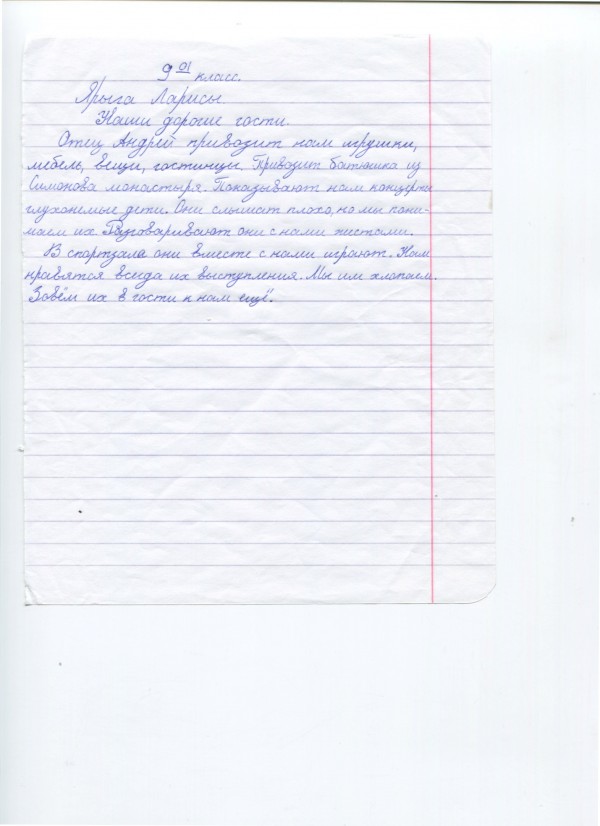 9 01 класс.
Ярыга Ларисы.
Наши дорогие гости.
Отец Андрей привозит нам игрушки,
мебель, вещи, гостинцы. Привозит батюшка из
Симонова монастыря. Показывают нам концерты
глухонемые дети. Они слышат плохо, но мы пони-
маем их. Разговаривают они с нами жистами.
В спортзале они вместе с нами играют. Нам
нравятся всегда их выступления. Мы им хлопаем.
Зовём их в гости к нам ещё.